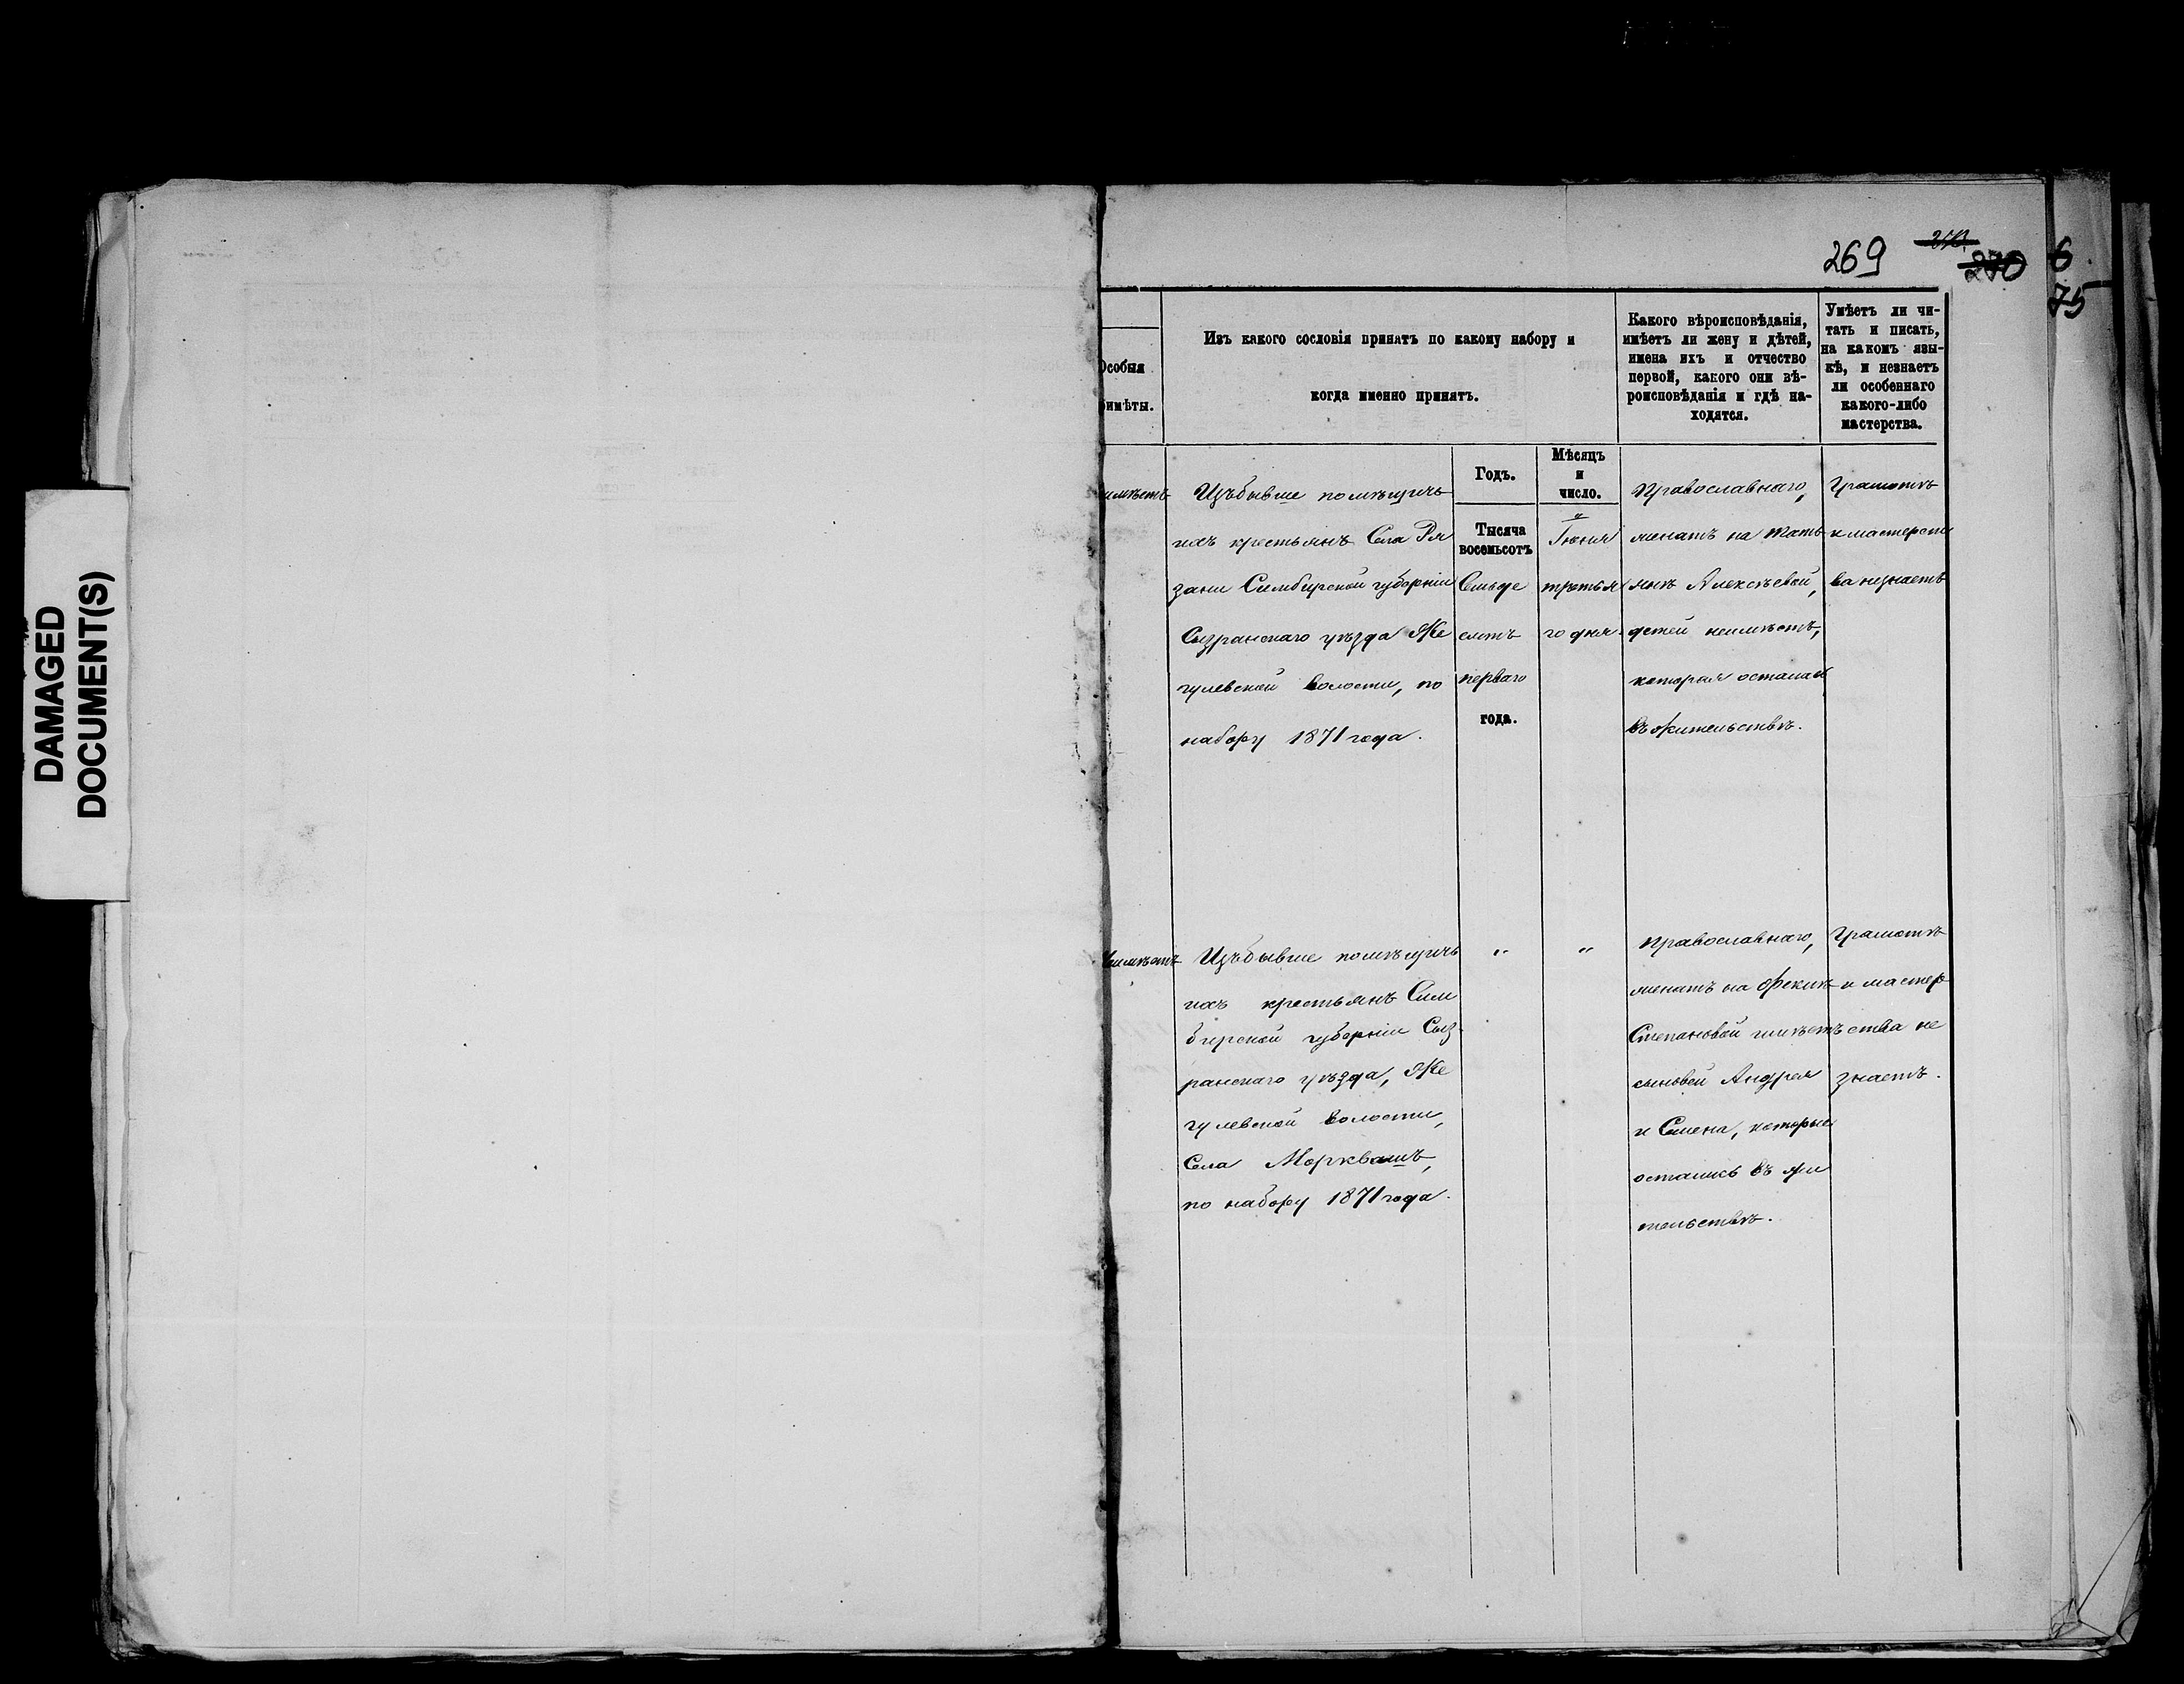 DAMAGED
DOCUMENT(S)
269
270
6.
75
Особыя
римѣты.
Изъ какого сословія принятъ по какому набору и
когда именно принятъ.
Какого вѣроисповѣданія,
имѣетъ ли жену и дѣтей,
имена ихъ и отчество
первой, какого они вѣ-
роисповѣданія и гдѣ на-
ходятся.
Умѣетъ ли чи-
тать и писать,
на какомъ язы-
кѣ, и незнаетъ
ли особеннаго
какого-либо
мастерства.
Годъ.
Мѣсяцъ
и
число.
имѣетъ
Изъ бывше помѣщичь
ихъ крестьянъ Села Ря
зани Симбирской губерніи
Сызранскаго уѣзда Же
гулевской волости, по
набору 1871 года.
Тысяча
восемьсотъ
Семьде
сятъ
перваго
года.
Іюня
третья
го дня.
Православнаго,
женатъ на Тать
янѣ Алексѣевой,
детей неимѣетъ,
которая осталась
въ жительствѣ.
Грамотѣ
и мастерст
ва незнаетъ
Неимѣетъ
Изъ бывше помѣщичь
ихъ крестьянъ Сим
бирской губерніи Сыз-
ранскаго уѣзда, Же
гулевской волости,
Села Морквашъ,
по набору 1871 года.
"
"
Православнаго,
женатъ на Феклѣ
Степановой имѣетъ
сыновей Андрея
и Семена, которые
остались въ жи
тельствѣ.
Грамотѣ
и мастер
ства не
знаетъ.